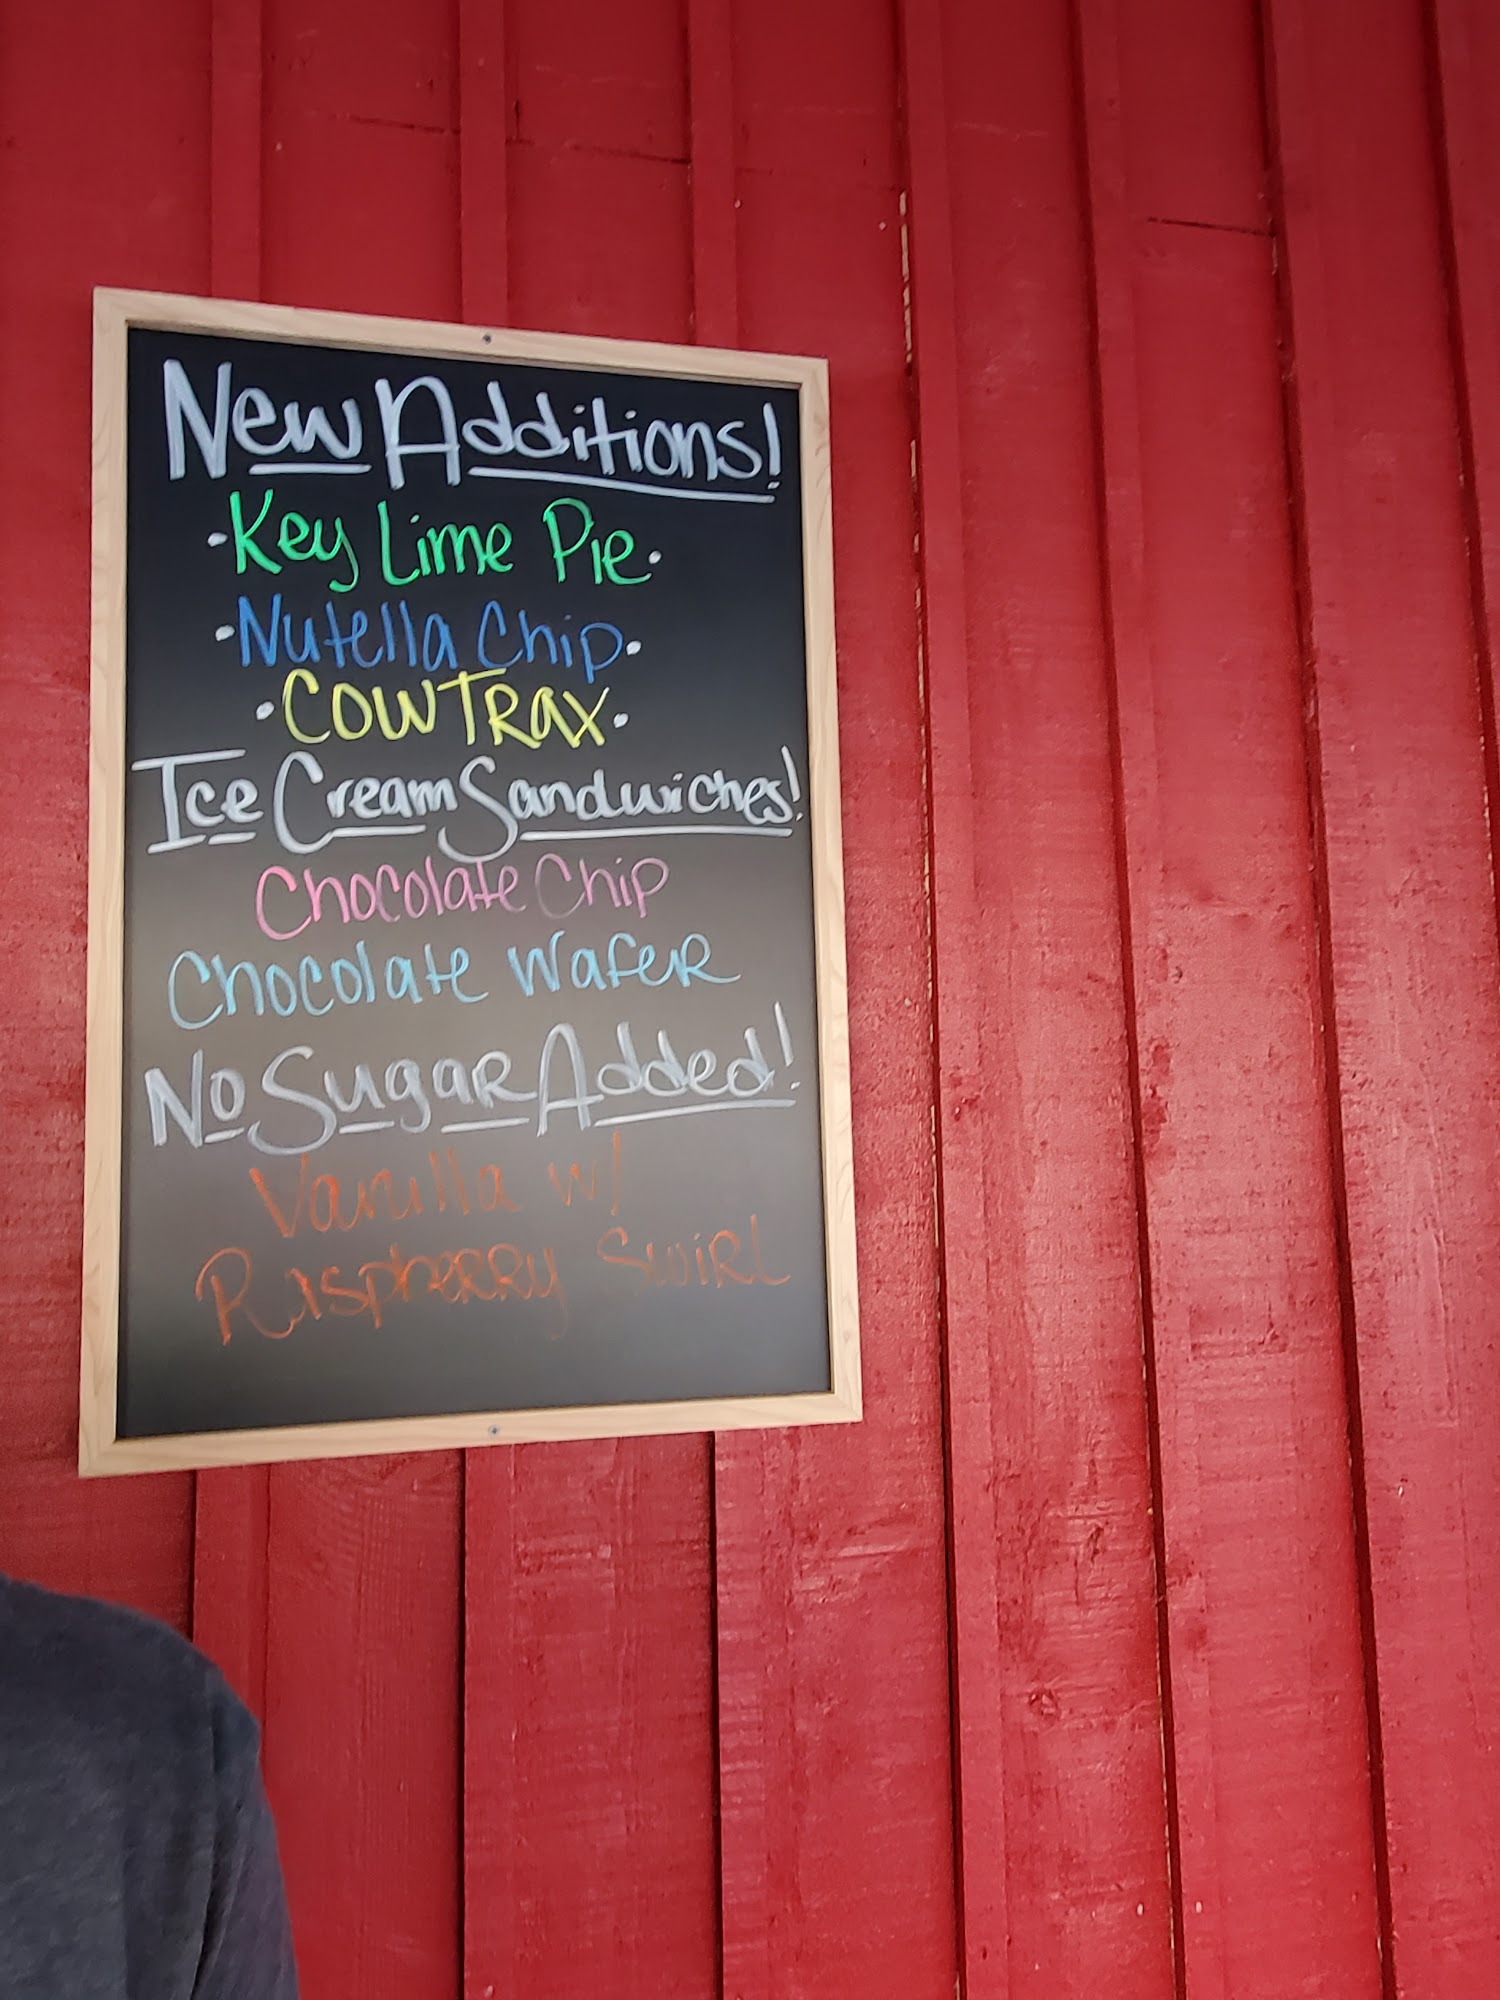 New Additions!
·Key Lime Pie·
·Nutella Chip·
·Cow Trax·
Ice Cream Sandwiches!
Chocolate Chip
Chocolate Wafer
No Sugar Added!
Vanilla w/
Raspberry Swirl